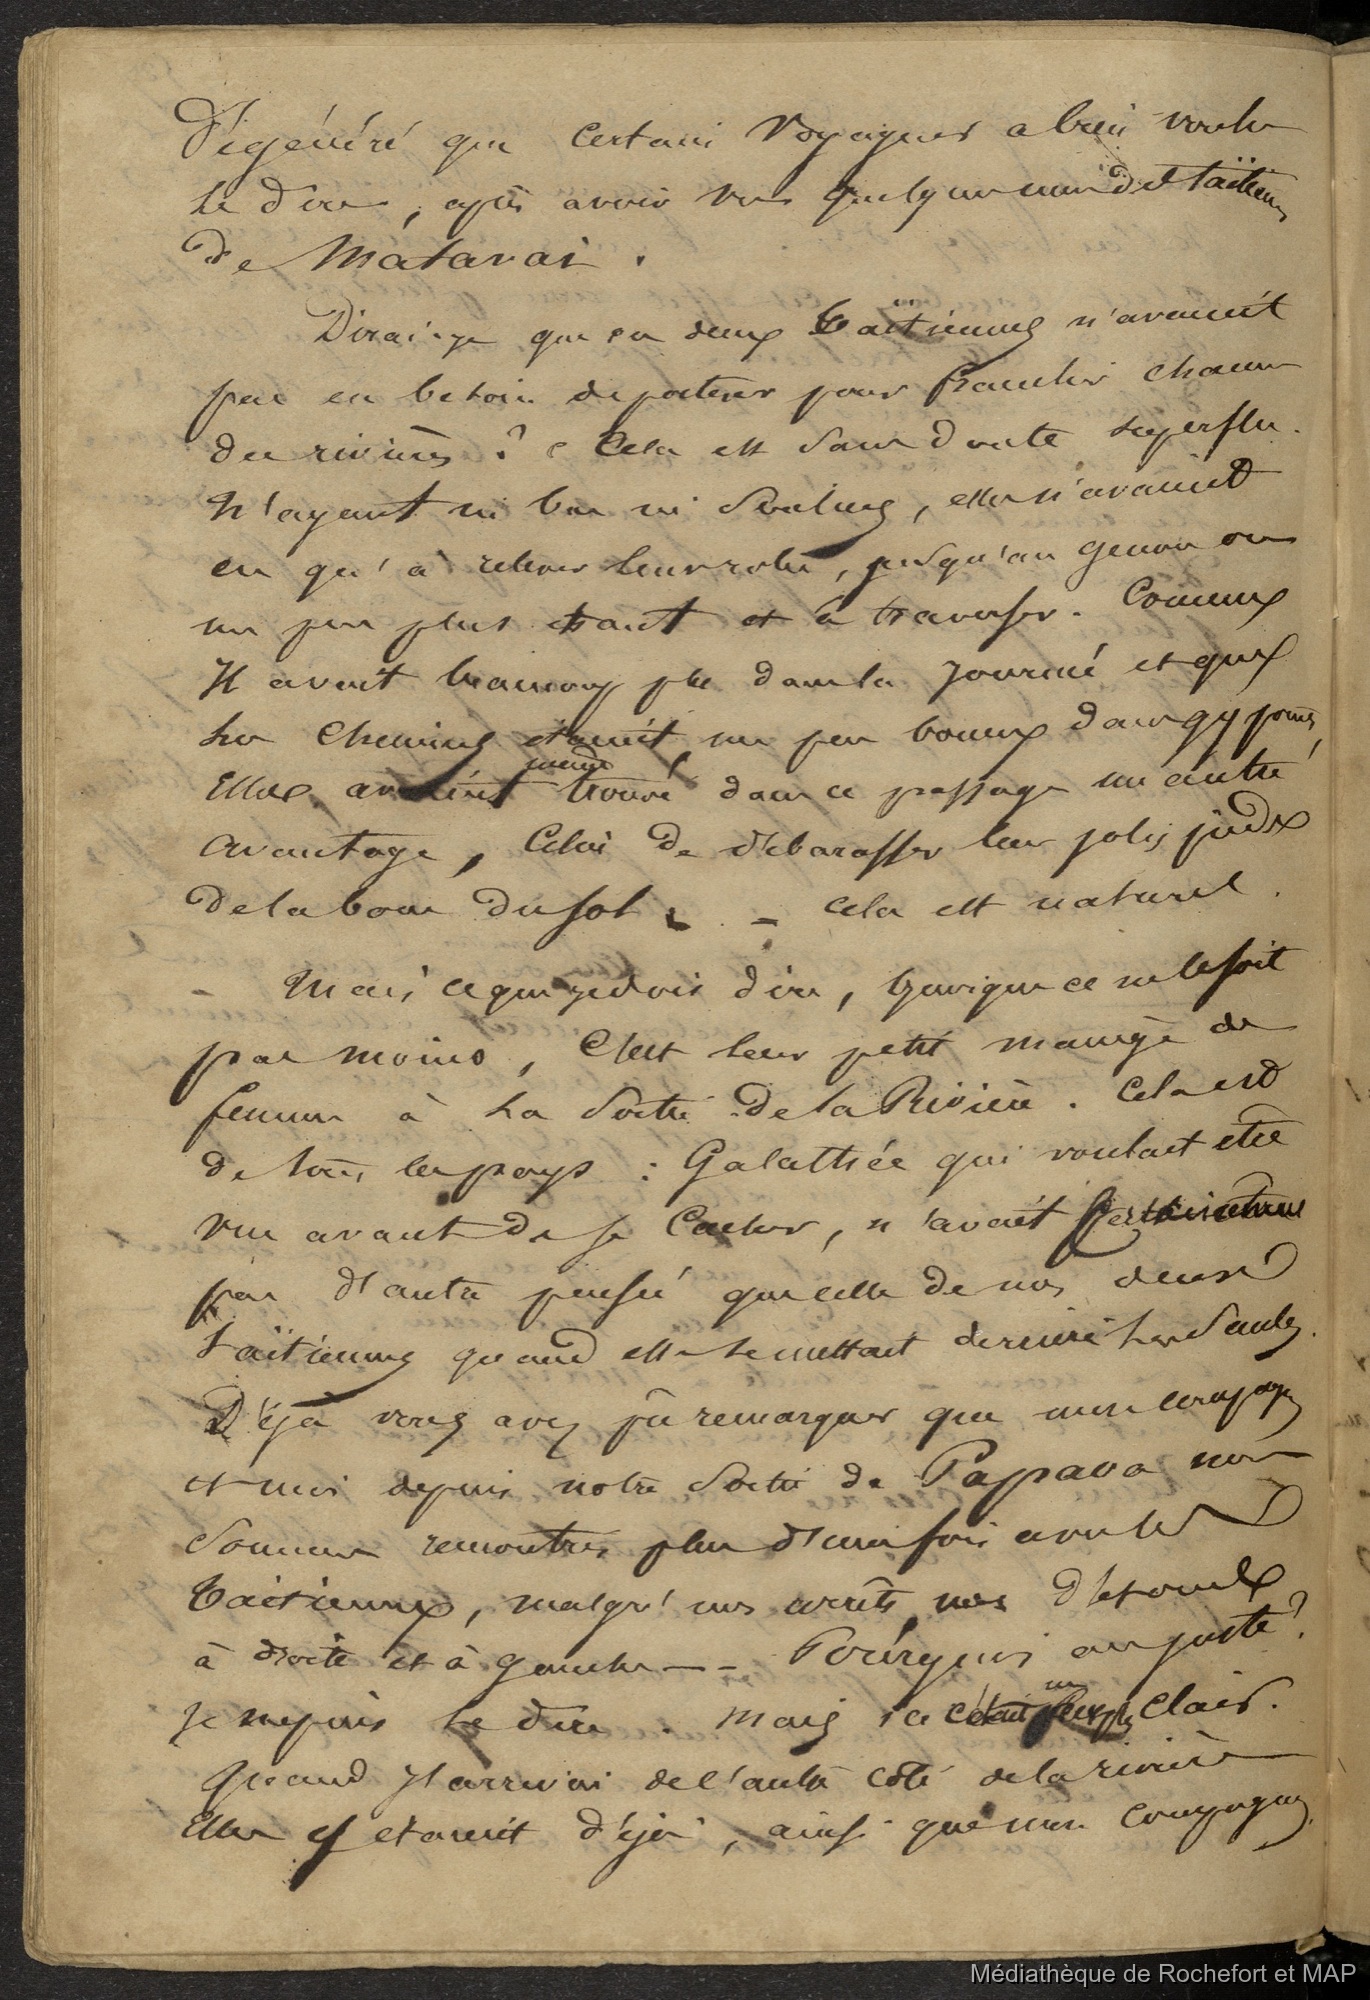 Dégénéré que certains voyageurs a bien voulu
le dire, après avoir vu quelques unes des Taïtiennes
de Matavai.
Dirai-je que ces deux Taïtiennes n'avaient
pas eu besoin de porteurs pour franchir chacune
des rivières ? Cela est sans doute superflu.
N'ayant ni bas ni souliers, elles n'avaient
eu qu'à relever leurs robes, jusqu'au genou ou
un peu plus haut et à traverser. Comme
Il avait beaucoup plu dans la journée et que
les chemins étaient un peu boueux
Elles avaient même trouvé dans ce passage un autre
avantage, Celui de débarasser leur jolis pieds
de la boue du sol. – Cela est naturel.
– Mais ce que je dois dire, quoique ce ne le soit
pas moins, C'est leur petit manège de
femme à la sortie de la Rivière. Cela est
de tous les pays : Galathée qui voulait être
vue avant de se Cacher, n'avait
pas d'autre pensée que celle de nos deux
taïtiennes quand elle se mettait derrière les Saules.
Déjà vous avez pû remarquer que mon compagnon
et moi depuis notre sortie de Papaoa nous
sommes rencontrés plus d'une fois avec les
taïtiennes, malgré nos arrêts, nos détours
à droite et à gauche –– Pourquoi au juste?
je ne puis le dire. Mais clair.
Quand j'arrivai de l'autre côté de la rivière
Elles y étaient déjà, ainsi que mon compagnon
Médiathèque de Rochefort et MAP